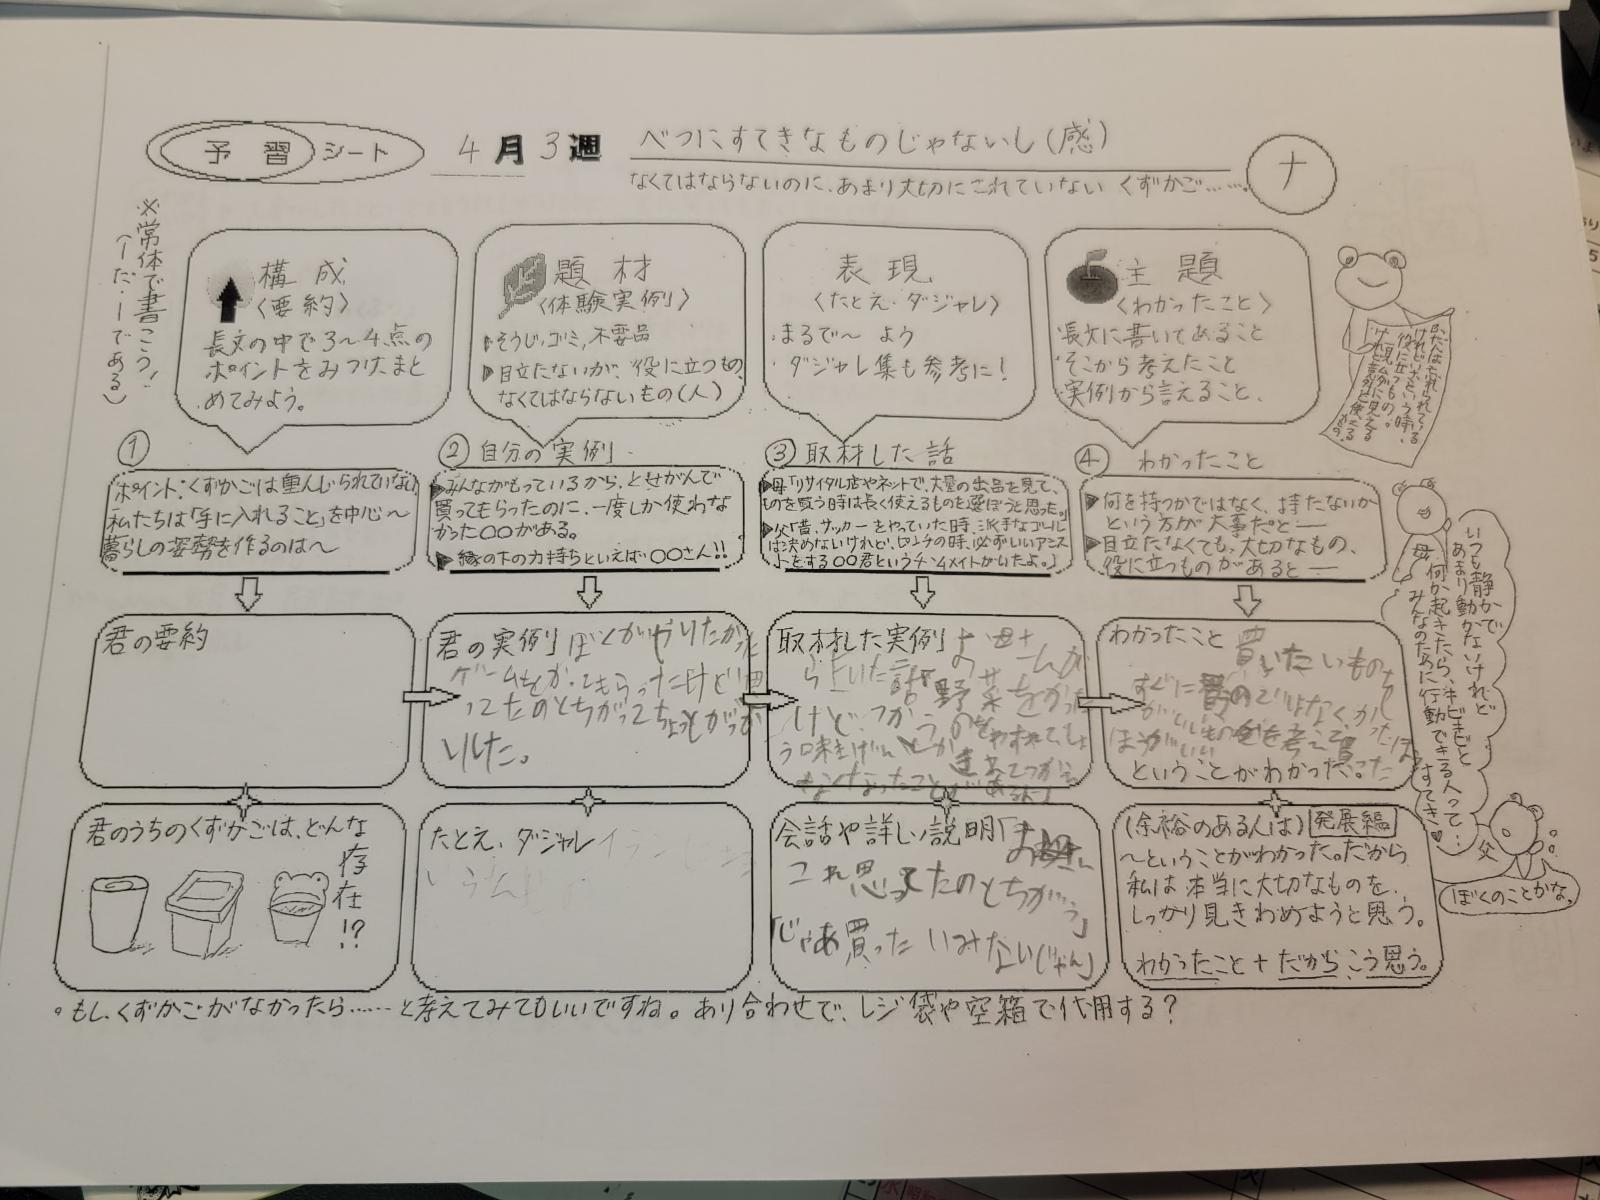 予習シート 4月3週 べつにすてきなものじゃないし(感)
なくてはならないのに、あまり大切にされていない くずかご……。
ナ
※常体で書こう!
(ーだ・ーである)
構成
〈要約〉
長文の中で3～4点の
ポイントをみつけ、まと
めてみよう。
題材
〈体験実例〉
そうじ、ゴミ、不要品
目立たないが、役に立つもの、
なくてはならないもの(人)
表現
〈たとえ・ダジャレ〉
・まるで～よう
・ダジャレ集も参考に!
主題
〈わかったこと〉
・長文に書いてあること
・そこから考えたこと
・実例から言えること、
①
ポイント:くずかごは重んじられていない
私たちは「手に入れること」を中心～
暮らしの姿勢を作るのは～
② 自分の実例
みんながもっているから、とせがんで
買ってもらったのに、一度しか使わな
かった〇〇がある。
縁の下の力持ちといえば〇〇さん!!
③ 取材した話
母「リサイクル店やネットで、大量の出品を見て、
ものを買う時は長く使えるものを選ぼうと思った。」
父「昔、サッカーをやっていた時、派手なゴール
は決めないけれど、ピンチの時、必ずいいアシス
トをする〇〇君というチームメイトがいたよ。」
④ わかったこと
何を持つかではなく、持たないか
という方が大事だとー
目立たなくても、大切なもの、
役に立つものがあるとー
君の要約
君の実例 ぼくがやりたかった
ゲームを
もらったけど思
ってたのとちがってちょっとがっか
りした。
取材した実例 お母さんか
ら
いた話「野菜をかった
けど、つかうのをわすれて、しょ
う味きげん
つかえ
なくなったことがあるよ」
わかったこと 買いたいものも
すぐに買うのではなく、
を考えて買ったほ
うがいい
ということがわかった。
君のうちのくずかごは、どんな
存在!?
たとえ、ダジャレ
会話や詳しい説明「
これ思ってたのとちがう」
「じゃあ買ったいみないじゃん」
(余裕のある人は) 発展編
～ということがわかった。だから
私は、本当に大切なものを、
しっかり見きわめようと思う。
わかったこと + だからこう思う。
いつも静かで
あまり動かないけれど
何か起きたら、キビキビと
みんなのために行動できる人って…
すてき♥
母
父
ぼくのことかな。
。もし、くずかごがなかったら……と考えてみてもいいですね。あり合わせで、レジ袋や空箱で代用する?